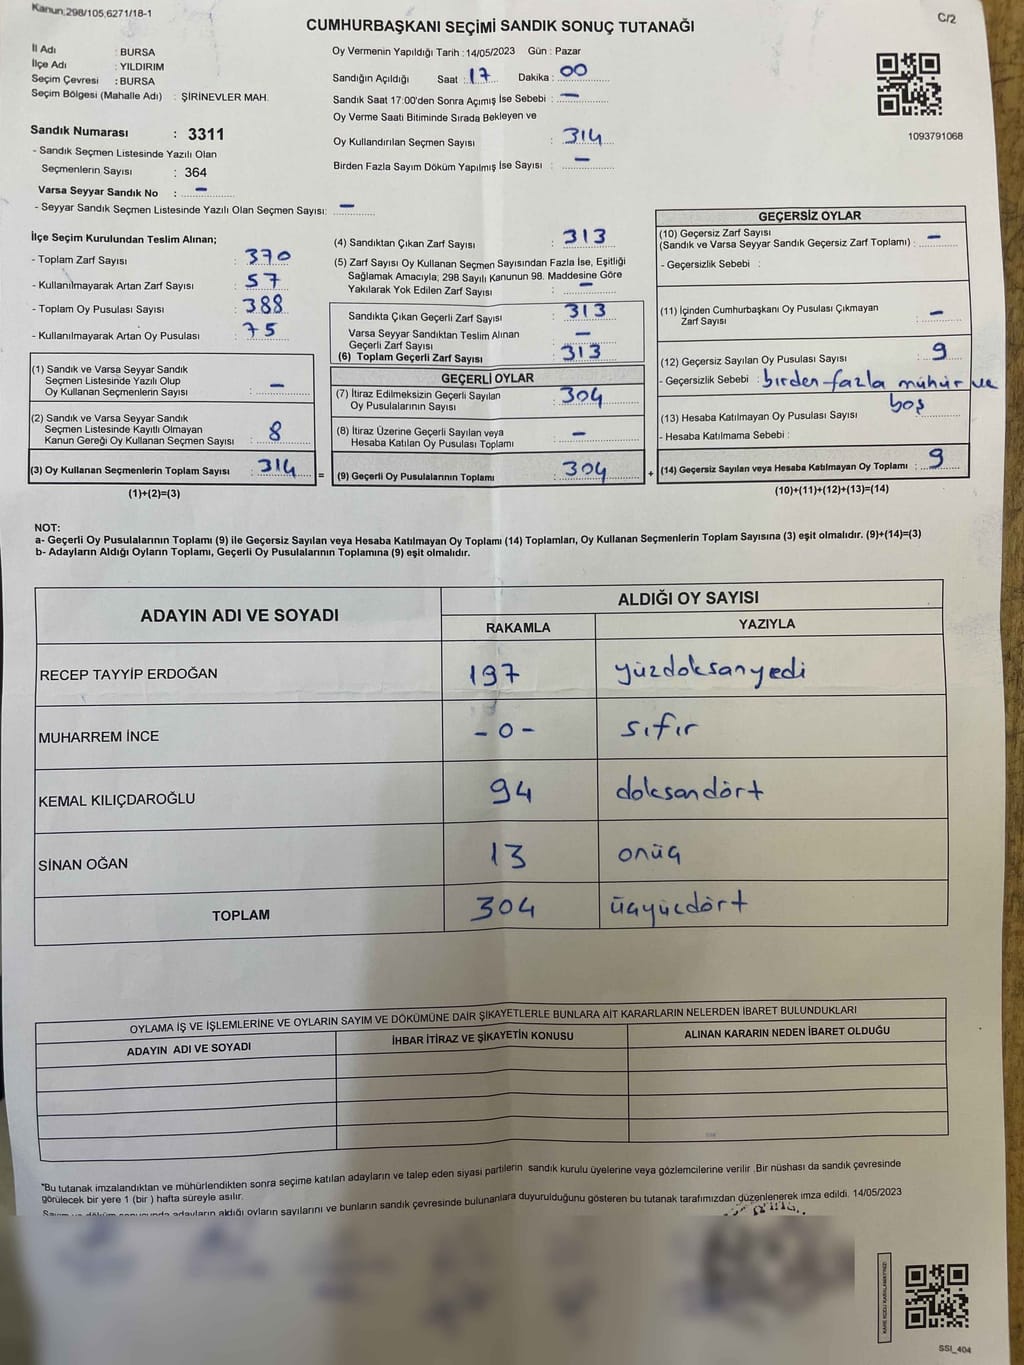 Kanun:298/105,6271/18-1
C/2
CUMHURBAŞKANI SEÇİMİ SANDIK SONUÇ TUTANAĞI
İl Adı : BURSA
İlçe Adı : YILDIRIM
Seçim Çevresi : BURSA
Seçim Bölgesi (Mahalle Adı) : ŞİRİNEVLER MAH.
Sandık Numarası : 3311
- Sandık Seçmen Listesinde Yazılı Olan
Seçmenlerin Sayısı : 364
Varsa Seyyar Sandık No : –
- Seyyar Sandık Seçmen Listesinde Yazılı Olan Seçmen Sayısı: –
Oy Vermenin Yapıldığı Tarih : 14/05/2023 Gün : Pazar
Sandığın Açıldığı Saat : 17 Dakika : 00
Sandık Saat 17:00'den Sonra Açımış İse Sebebi : –
Oy Verme Saati Bitiminde Sırada Bekleyen ve
Oy Kullandırılan Seçmen Sayısı : 314
Birden Fazla Sayım Döküm Yapılmış İse Sayısı : –
1093791068
İlçe Seçim Kurulundan Teslim Alınan;
- Toplam Zarf Sayısı : 370
- Kullanılmayarak Artan Zarf Sayısı : 57
- Toplam Oy Pusulası Sayısı : 388
- Kullanılmayarak Artan Oy Pusulası : 75
(1) Sandık ve Varsa Seyyar Sandık
Seçmen Listesinde Yazılı Olup
Oy Kullanan Seçmenlerin Sayısı : –
(2) Sandık ve Varsa Seyyar Sandık
Seçmen Listesinde Kayıtlı Olmayan
Kanun Gereği Oy Kullanan Seçmen Sayısı : 8
(3) Oy Kullanan Seçmenlerin Toplam Sayısı : 314
(1)+(2)=(3)
(4) Sandıktan Çıkan Zarf Sayısı : 313
(5) Zarf Sayısı Oy Kullanan Seçmen Sayısından Fazla İse, Eşitliği
Sağlamak Amacıyla, 298 Sayılı Kanunun 98. Maddesine Göre
Yakılarak Yok Edilen Zarf Sayısı : –
Sandıkta Çıkan Geçerli Zarf Sayısı : 313
Varsa Seyyar Sandıktan Teslim Alınan
Geçerli Zarf Sayısı : –
(6) Toplam Geçerli Zarf Sayısı : 313
GEÇERLİ OYLAR
(7) İtiraz Edilmeksizin Geçerli Sayılan
Oy Pusulalarının Sayısı : 304
(8) İtiraz Üzerine Geçerli Sayılan veya
Hesaba Katılan Oy Pusulası Toplamı : –
= (9) Geçerli Oy Pusulalarının Toplamı : 304 +
GEÇERSİZ OYLAR
(10) Geçersiz Zarf Sayısı
(Sandık ve Varsa Seyyar Sandık Geçersiz Zarf Toplamı) : –
- Geçersizlik Sebebi :
(11) İçinden Cumhurbaşkanı Oy Pusulası Çıkmayan
Zarf Sayısı : –
(12) Geçersiz Sayılan Oy Pusulası Sayısı : 9
- Geçersizlik Sebebi : birden fazla mühür ve
boş
(13) Hesaba Katılmayan Oy Pusulası Sayısı :
- Hesaba Katılmama Sebebi :
(14) Geçersiz Sayılan veya Hesaba Katılmayan Oy Toplamı : 9
(10)+(11)+(12)+(13)=(14)
NOT:
a- Geçerli Oy Pusulalarının Toplamı (9) ile Geçersiz Sayılan veya Hesaba Katılmayan Oy Toplamı (14) Toplamları, Oy Kullanan Seçmenlerin Toplam Sayısına (3) eşit olmalıdır. (9)+(14)=(3)
b- Adayların Aldığı Oyların Toplamı, Geçerli Oy Pusulalarının Toplamına (9) eşit olmalıdır.
ADAYIN ADI VE SOYADI
ALDIĞI OY SAYISI
RAKAMLA YAZIYLA
RECEP TAYYİP ERDOĞAN 197 yüzdoksanyedi
MUHARREM İNCE -0- sıfır
KEMAL KILIÇDAROĞLU 94 doksandört
SİNAN OĞAN 13 onüç
TOPLAM 304 üçyüzdört
OYLAMA İŞ VE İŞLEMLERİNE VE OYLARIN SAYIM VE DÖKÜMÜNE DAİR ŞİKAYETLERLE BUNLARA AİT KARARLARIN NELERDEN İBARET BULUNDUKLARI
ADAYIN ADI VE SOYADI İHBAR İTİRAZ VE ŞİKAYETİN KONUSU ALINAN KARARIN NEDEN İBARET OLDUĞU
*Bu tutanak imzalandıktan ve mühürlendikten sonra seçime katılan adayların ve talep eden siyasi partilerin sandık kurulu üyelerine veya gözlemcilerine verilir .Bir nüshası da sandık çevresinde
görülecek bir yere 1 (bir ) hafta süreyle asılır.
adayların aldığı oyların sayılarını ve bunların sandık çevresinde bulunanlara duyurulduğunu gösteren bu tutanak tarafımızdan düzenlenerek imza edildi. 14/05/2023
SSI_404